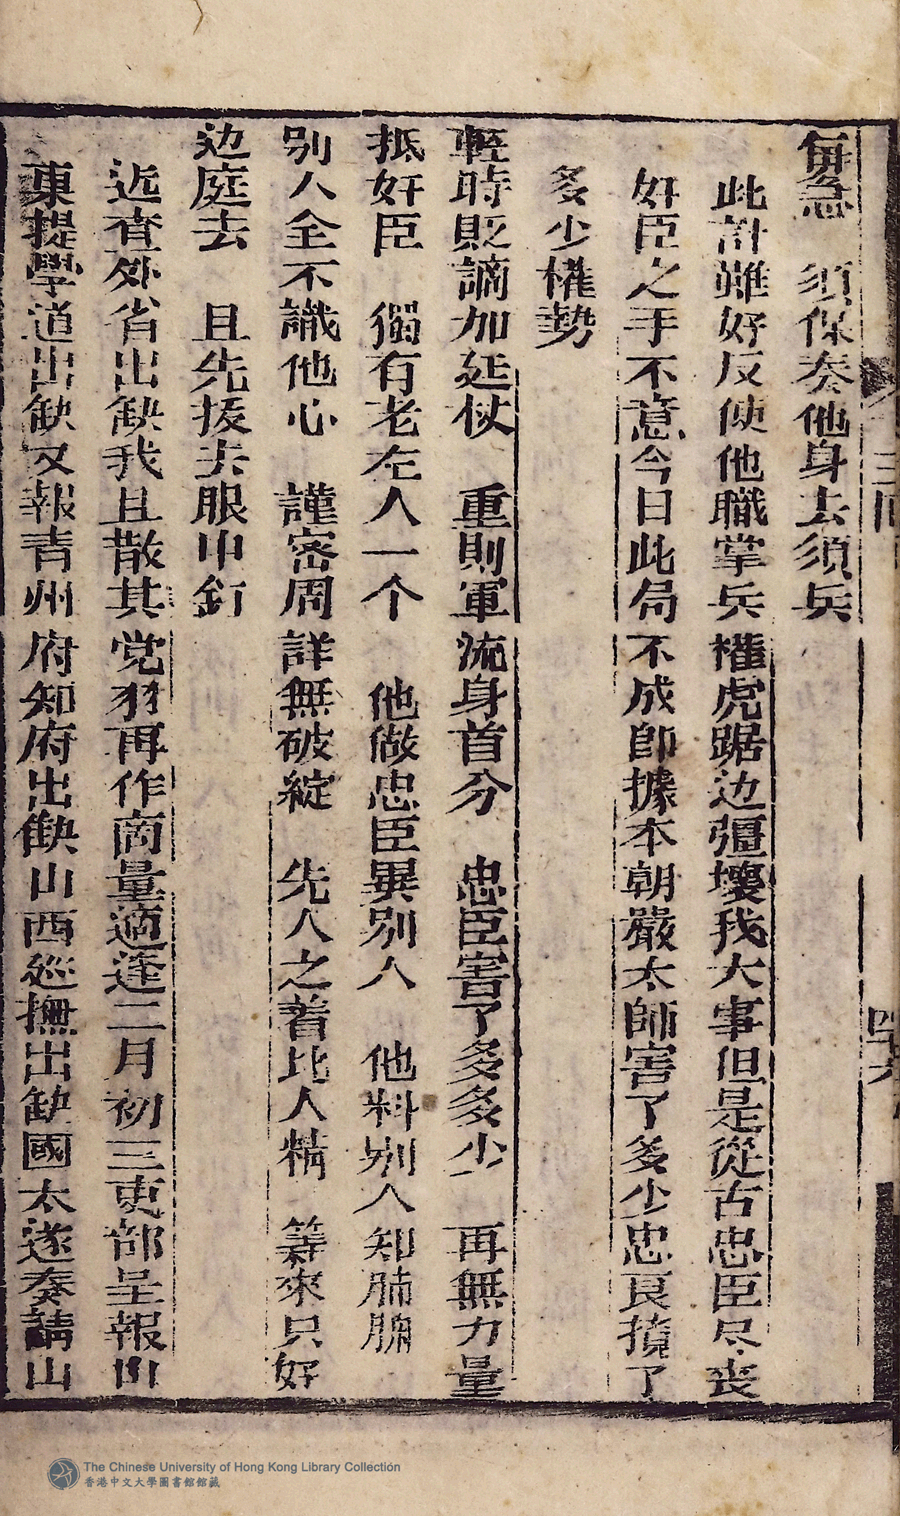 毎急　須保奏他身去須兵
此計雖好反使他職掌兵權虎踞边彊壞我大事但是從古忠臣尽喪
奸臣之手不意今日此局不成即據本朝嚴太師害了多少忠良攬了
多少權勢
輕時貶謫加延杖　重則軍流身首分　忠臣害了多多少　再無力量
抵奸臣　獨有老左人一个　他做忠臣異别人　他料别人知肺腑
别人全不識他心　謹密周詳無破綻　先人之著比人精　筭來只好
边庭去　且先拔去眼中釘
近査外省出缺我且散其党羽再作商量適逢二月初三吏部呈報山
東提學道出缺又報青州府知府出缺山西巡撫出缺國太遂奏請山
三回
四十六
The Chinese University of Hong Kong Library Collection
香港中文大學圖書館館藏